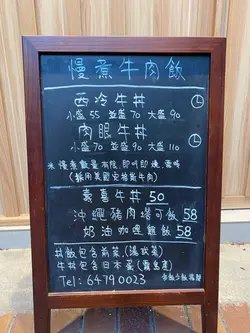 慢煮牛肉飯
西冷牛丼
小盛 55 並盛 70 大盛 90
肉眼牛丼
小盛 70 並盛 90 大盛 110
※ 慢煮數量有限,即叫即燒
(採用美國安格斯牛肉)
壽喜牛丼 50
沖繩豬肉塔可飯 58
奶油咖喱雞飯 58
丼飯包含前菜(湯或菜)
牛丼包含日本蛋
Tel: 6479 0023